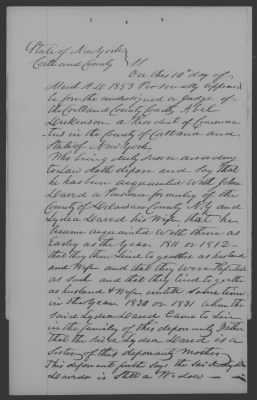 State of New York
Cortland County } SS
On this 10th day of
March A D 1853 Personally appeared
before the undersigned a Judge of
the Cortland County Court Abel
Dickenson a Resident of Cincinna
tus in the County of Cortland and
State of New York
Who being duly sworn according
to Law doth depose and Say that
he has been acquainted With John
a Pensioner formerly of the
County of County N.Y and
Lydia his Wife that he
became acquainted With them as
Early as the year 1811 or 1812 -
that they then lived to geather as husband
and Wife and that they Were Reputed
as such and that they lived to geather
as husband & Wife untill Some time
in the year 1830 or 1831 when the
said Lydia Came to Live
in the family of this deponants Father
that the said Lydia is a
Sister of this deponants mother
This deponant further says the said Lydia
is Still a Widow -